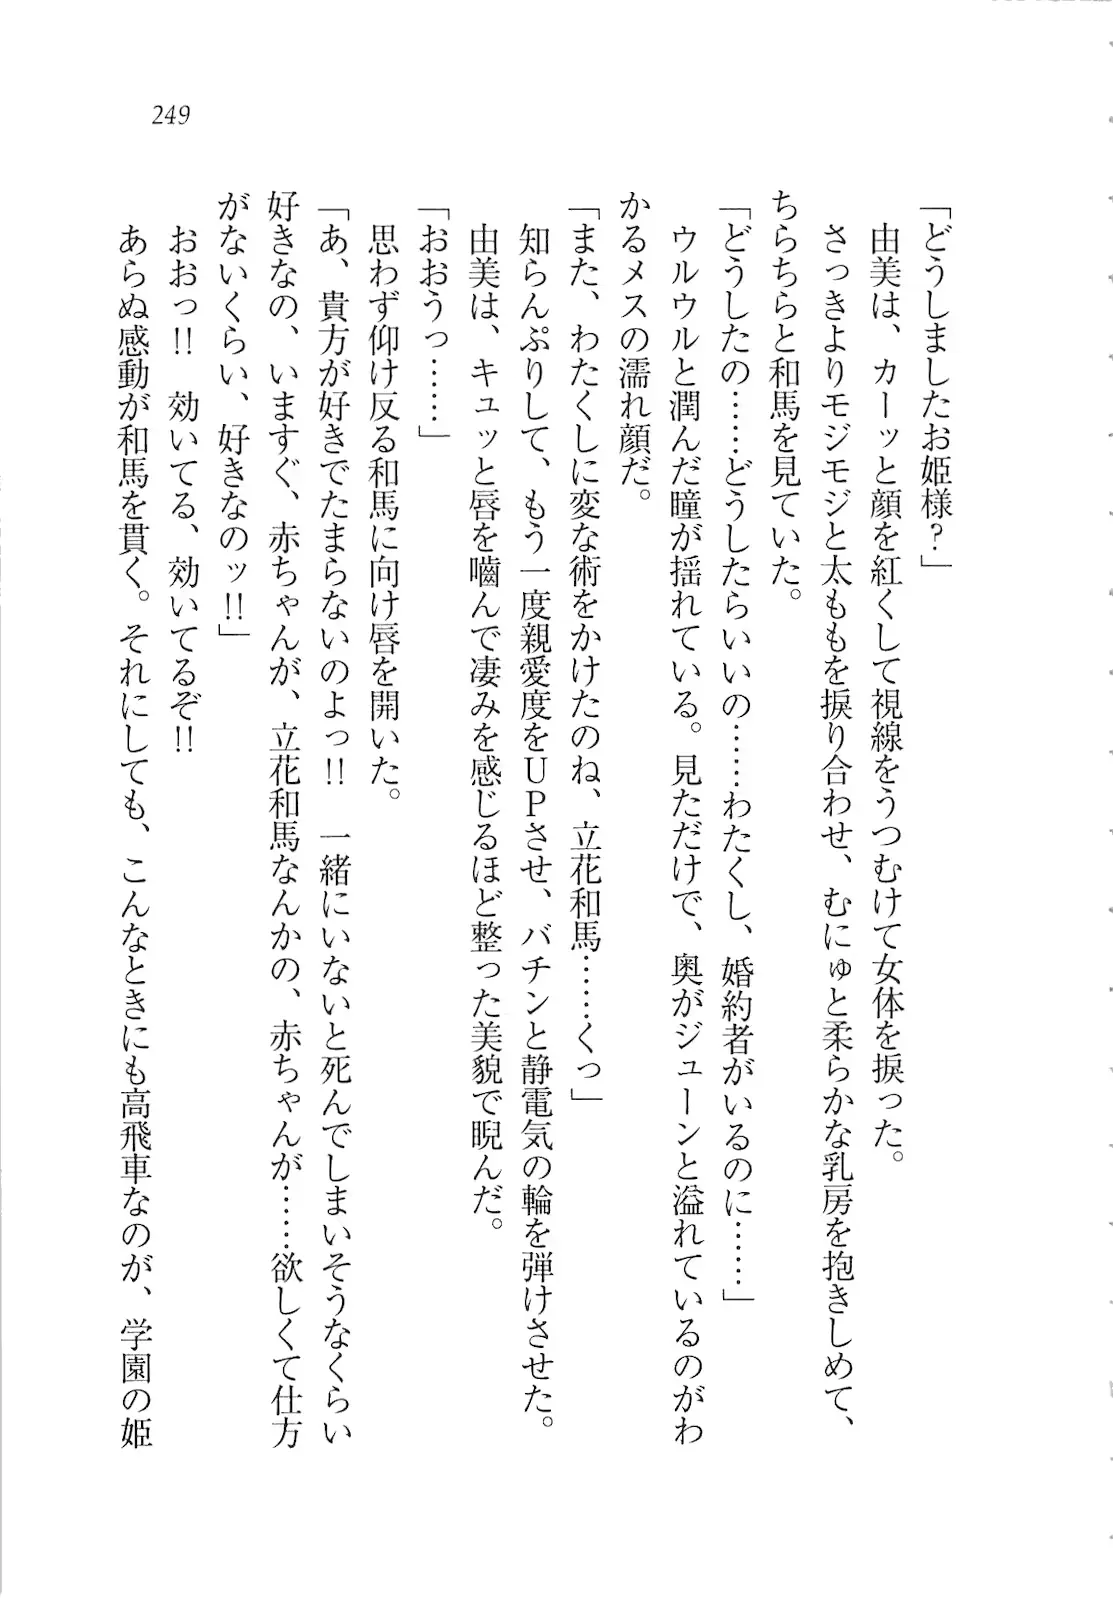 249
「どうしましたお姫様？」
由美は、カーッと顔を紅くして視線をうつむけて女体を捩った。
さっきよりモジモジと太ももを捩り合わせ、むにゅと柔らかな乳房を抱きしめて、
ちらちらと和馬を見ていた。
「どうしたの……どうしたらいいの……わたくし、婚約者がいるのに……」
ウルウルと潤んだ瞳が揺れている。見ただけで、奥がジューンと溢れているのがわ
かるメスの濡れ顔だ。
「また、わたくしに変な術をかけたのね、立花和馬……くっ」
知らんぷりして、もう一度親愛度をＵＰさせ、バチンと静電気の輪を弾けさせた。
由美は、キュッと唇を嚙んで凄みを感じるほど整った美貌で睨んだ。
「おおうっ……」
思わず仰け反る和馬に向け唇を開いた。
「あ、貴方が好きでたまらないのよっ!!　一緒にいないと死んでしまいそうなくらい
好きなの、いますぐ、赤ちゃんが、立花和馬なんかの、赤ちゃんが……欲しくて仕方
がないくらい、好きなのッ!!」
おおっ!!　効いてる、効いてるぞ!!
あらぬ感動が和馬を貫く。それにしても、こんなときにも高飛車なのが、学園の姫